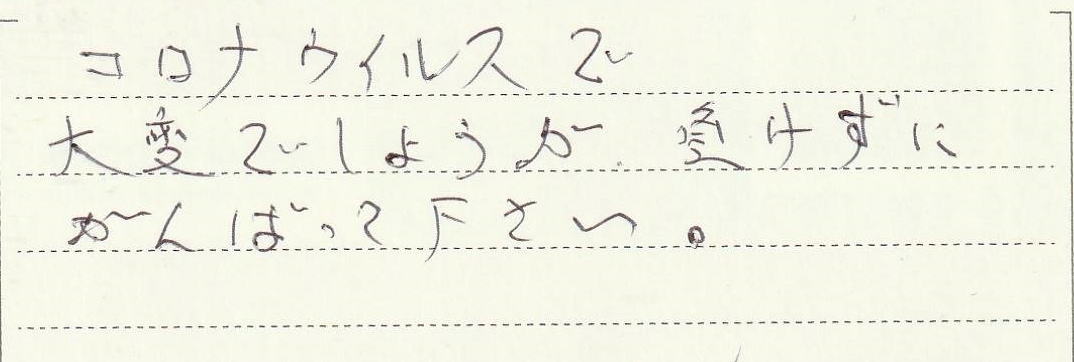 コロナウイルスで
大変でしょうが、負けずに
がんばって下さい。